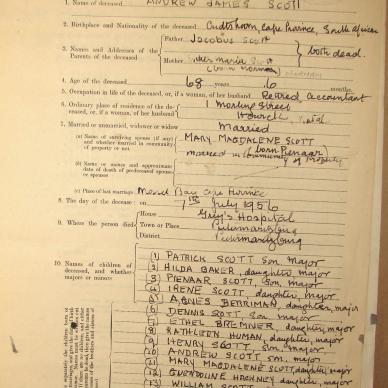 1. Name of deceased ANDREW JAMES SCOTT
2. Birthplace and Nationality of the deceased Oudtshoorn, Cape Province, South African
3. Names and Addresses of the Parents of the deceased
Father Jacobus Scott
Mother Maria Scott
both dead.
4. Age of the deceased 68 years 6 months
5. Occupation in life of the deceased, or, if a woman, of her husband Retired Accountant
6. Ordinary place of residence of the deceased, or, if a woman, of her husband 1 Morling Street
Howick, Natal
7. Married or unmarried, widower or widow Married
(a) Name of surviving spouse (if any) and whether married in community of property or not MARY MAGDALENE SCOTT
(born Pienaar)
married in Community of Property
(b) Name or names and approximate date of death of predeceased spouse or spouses
(c) Place of last marriage Mossel Bay Cape Province
8. The day of the decease: on 7th July 1956
9. Where the person died
House Grey's Hospital
Town or Place Pietermaritzburg
District Pietermaritzburg
10. Names of children of deceased, and whether majors or minors
(1) PATRICK SCOTT son, major
(2) HILDA BAKER, daughter, major
(3) PIENAAR SCOTT, son, major
(4) IRENE SCOTT, daughter, major
(5) AGNES BERRIMAN, daughter, major
(6) DENNIS SCOTT son, major
(7) ETHEL BREMNER, daughter, major
(8) KATHLEEN HUMAN, daughter, major
(9) HENRY SCOTT, son, major
(10) ANDREW SCOTT son, major
(11) MARY MAGDALENE SCOTT, daughter, major
(12) GWENDOLINE HACKNEY, daughter, major
(13) WILLIAM SCOTT